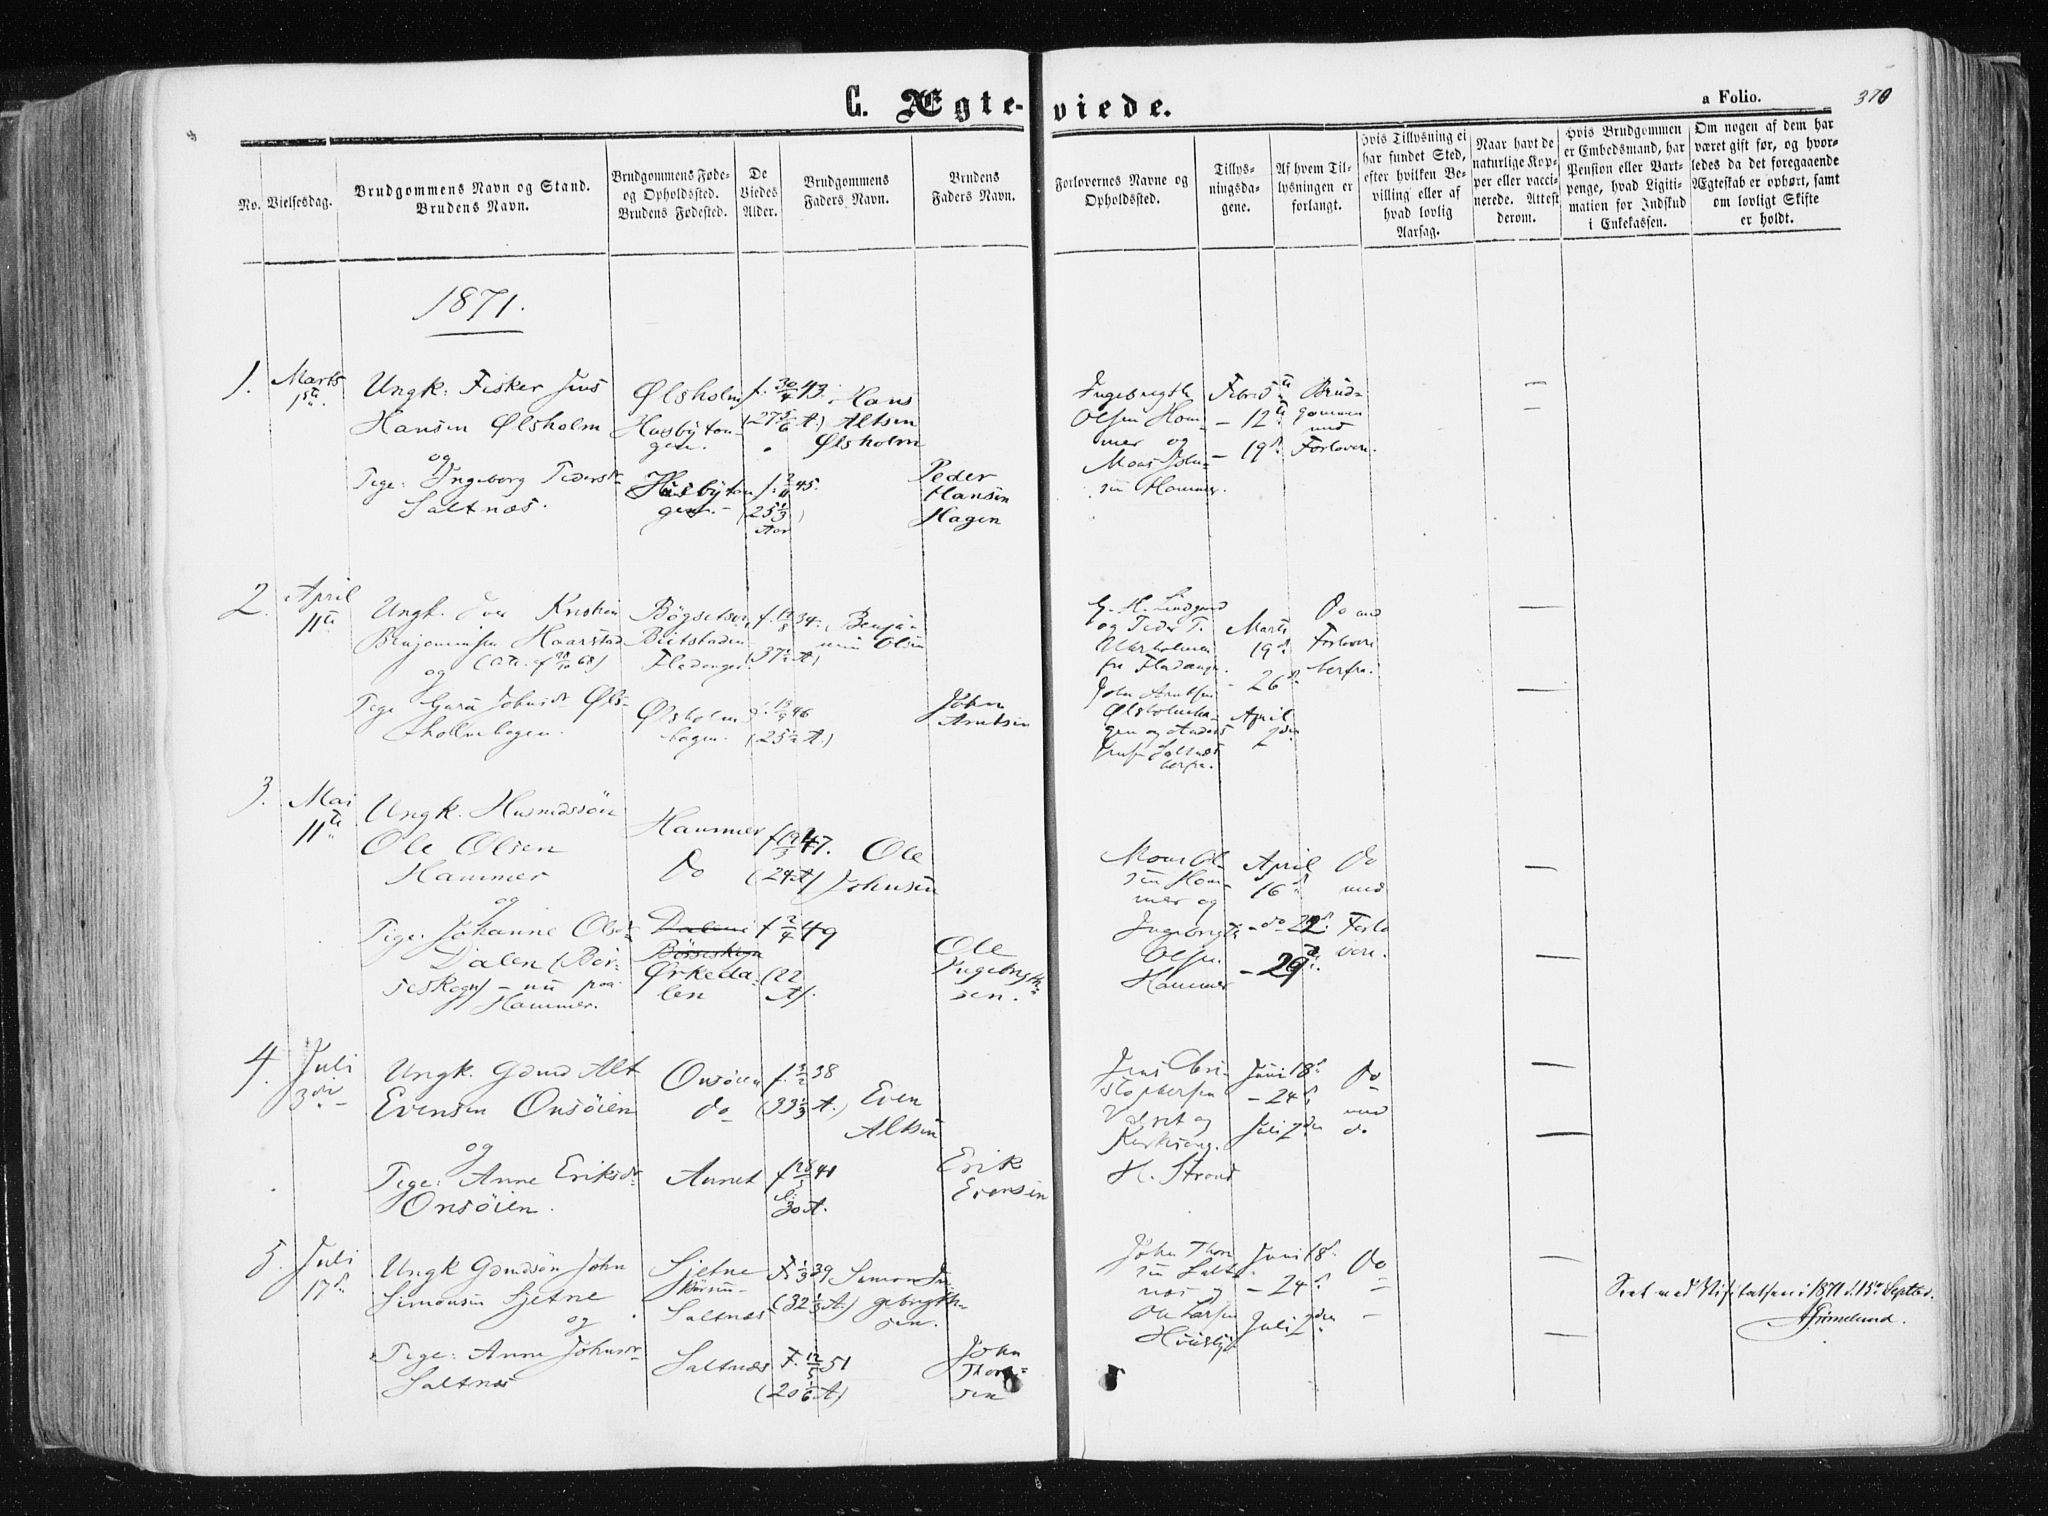 C. Ægteviede.
a Folio.
370
No.
Vielsesdag.
Brudgommens Navn og Stand.
Brudens Navn.
Brudgommens Føde-
og Opholdssted.
Brudens Fødested.
De
Viedes
Alder.
Brudgommens
Faders Navn.
Brudens
Faders Navn.
Forlovernes Navne og
Opholdssted.
Tillys-
ningsda-
gene.
Af hvem Til-
lysningen er
forlangt.
Hvis Tillysning ei
har fundet Sted,
efter hvilken Be-
villing eller af
hvad lovlig
Aarsag.
Naar havt de
naturlige Kop-
per eller vacci-
nerede. Attest
derom.
Hvis Brudgommen
er Embedsmand, har
Pension eller Vart-
penge, hvad Ligiti-
mation for Indskud
i Enkekassen.
Om nogen af dem har
været gift før, og hvor-
ledes da det foregaaende
Ægteskab er ophørt, samt
om lovligt Skifte
er holdt.
1871.
1.
Marts
1ste
Ungk: Fisker Jens
Hansen Ølsholm
og
Pige: Ingeborg Pedersdr
Saltnæs.
Ølsholm
Husbytan-
gen.
Husbytan
gen.
f. 30/4 43.
(27 5/6 A.)
f. 2/11 45.
(25 1/3)
Aar
Hans
Altsen
Ølsholm
Peder
Hansen
Hagen
Ingebrigth
Olsen Ham-
mer og
Moas John-
sen Hammer.
Febr 5te
- 12te
- 19d.
Brud-
gommen
med
Forlovere.
2.
April
11te
Ungk. Iver Kristian
Benjaminsen Haarstad
og
Pige Guru Johnsdr Øls-
holmhagen.
Bøgsetser
Beitstaden
Fladanger
Ølsholm
hagen.
34.
(37 1/2 A)
46
(25 1/2 A.)
Benja-
min Olsen
John
Arntsen
G. H. Lindgaard
og Peder P.
fra Fladanger.
John Arntsen
Ølsholmha-
gen og Anders
Saltnæs
Marts
19d.
- 26d.
April
2den
Do med
Forlovere
3.
Mai
11te
Ungk. Husmdssøn
Ole Olsen
Hammer
og
Pige: Johanne Olsdr
Dalen (Bør-
seskogn) - nu paa
Hammer.
Hammer
Do
Dalen i
Børseskogn
Ørkeda-
len
f. 19/3 47.
(24 A)
f. 2/4 49
(22
A).
Ole
Johnsen
Ole
Ingebrigth-
sen.
Moas Ol-
sen Ham-
mer og
Ingebrigth
Olsen
Hammer
April
16d.
- do 22d.
- 29d.
Do
med
Forlo
vere.
4.
Juli
3die
Ungk. Gmd Alt
Evensen Onsøien
og
Pige: Anne Eriksdr
Onsøien.
Onsøien
do
Aunet
f. 3/2 38
(33 1/3 A.)
41
30 A.
Even
Altsen
Erik
Evensen
Jens Chri-
stophersen
Valset og
H. Strand
Juni 18d.
- 24d.
Juli 2den
Do
med
do
5.
Juli
17d.
Ungk Gmdsøn John
Simonsen Sjetne
og
Pige: Anne Johnsdr
Saltnæs
Sjetne
Børsen-
Saltnæs
Saltnæs
F. 1/3 39
(32 1/3 A.)
F. 12/5 51
(20 1/6 A)
Simon In
gebrigth-
sen.
John
Thor-
sen
John Thor
sen Salt-
næs og
Ole Larsen
Huusby
Juni 18d.
- 24d.
Juli 2den
Do
Seet ved Visitatsen i 1871 d. 15de Septbr.
AGrimelund.